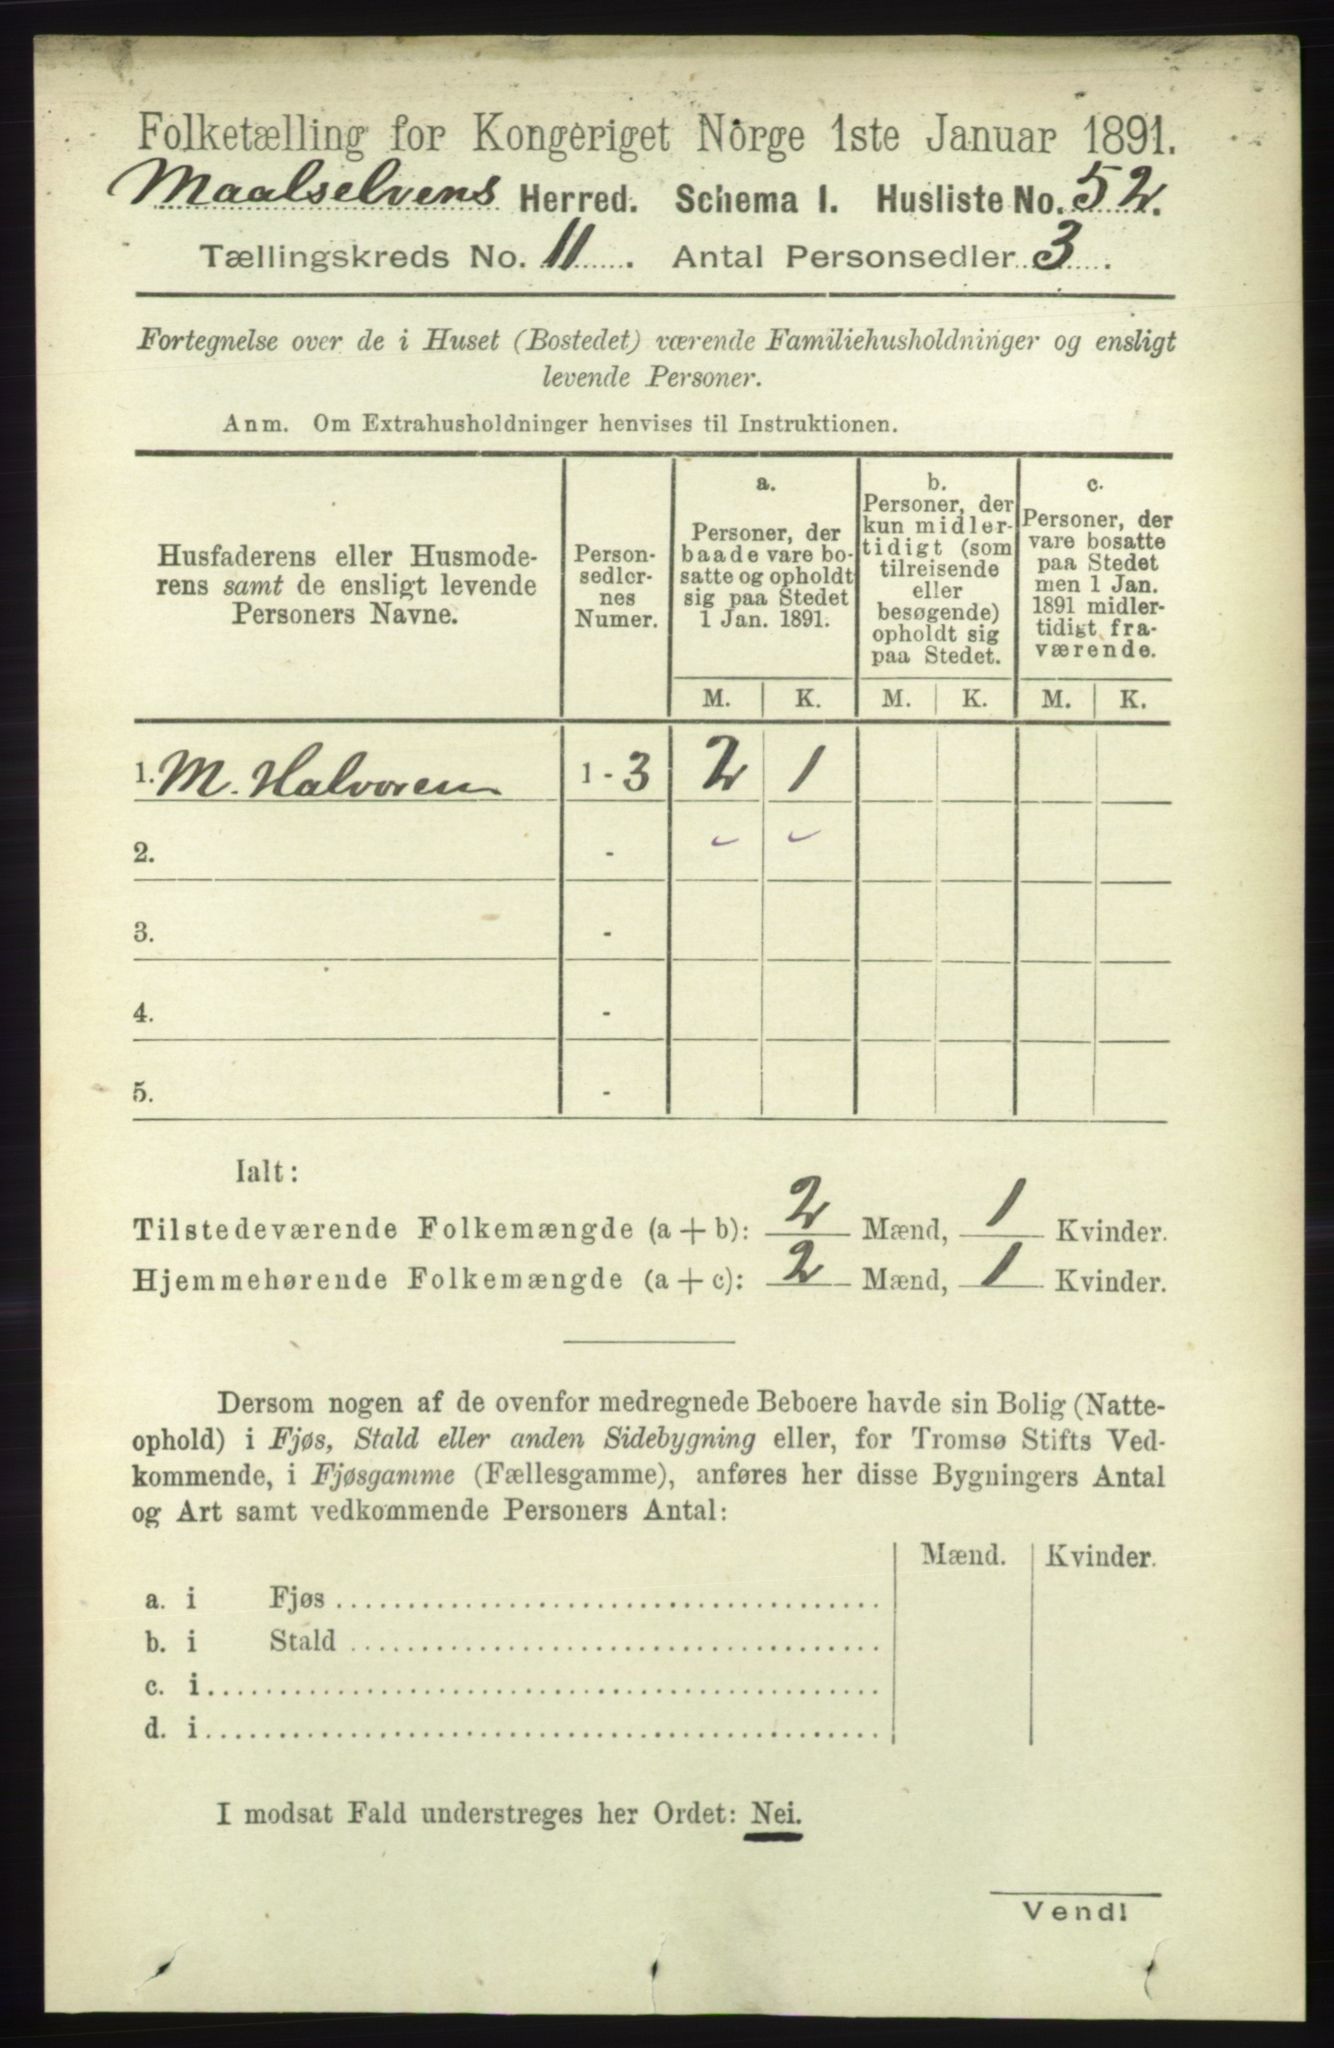 Folketælling for Kongeriget Norge 1ste Januar 1891.
Maalselvens Herred. Schema I. Husliste No. 52.
Tællingskreds No. 11. Antal Personsedler 3.
Fortegnelse over de i Huset (Bostedet) værende Familiehusholdninger og ensligt
levende Personer.
Anm. Om Extrahusholdninger henvises til Instruktionen.
Husfaderens eller Husmode-
rens samt de ensligt levende
Personers Navne.
Person-
sedler-
nes
Numer.
a.
Personer, der
baade vare bo-
satte og opholdt
sig paa Stedet
1 Jan. 1891.
b.
Personer, der
kun midler-
tidigt (som
tilreisende
eller
besøgende)
opholdt sig
paa Stedet.
c.
Personer, der
vare bosatte
paa Stedet
men 1 Jan.
1891 midler-
tidigt fra-
værende.
M. K. M. K. M. K.
1. M. Halvoren 1 - 3 2 1
2. -
3. -
4. -
5. -
Ialt:
Tilstedeværende Folkemængde (a + b): 2 Mænd, 1 Kvinder.
Hjemmehørende Folkemængde (a + c): 2 Mænd, 1 Kvinder.
Dersom nogen af de ovenfor medregnede Beboere havde sin Bolig (Natte-
ophold) i Fjøs, Stald eller anden Sidebygning eller, for Tromsø Stifts Ved-
kommende, i Fjøsgamme (Fællesgamme), anføres her disse Bygningers Antal
og Art samt vedkommende Personers Antal:
Mænd. Kvinder.
a. i Fjøs
b. i Stald
c. i
d. i
I modsat Fald understreges her Ordet: Nei.
Vend!